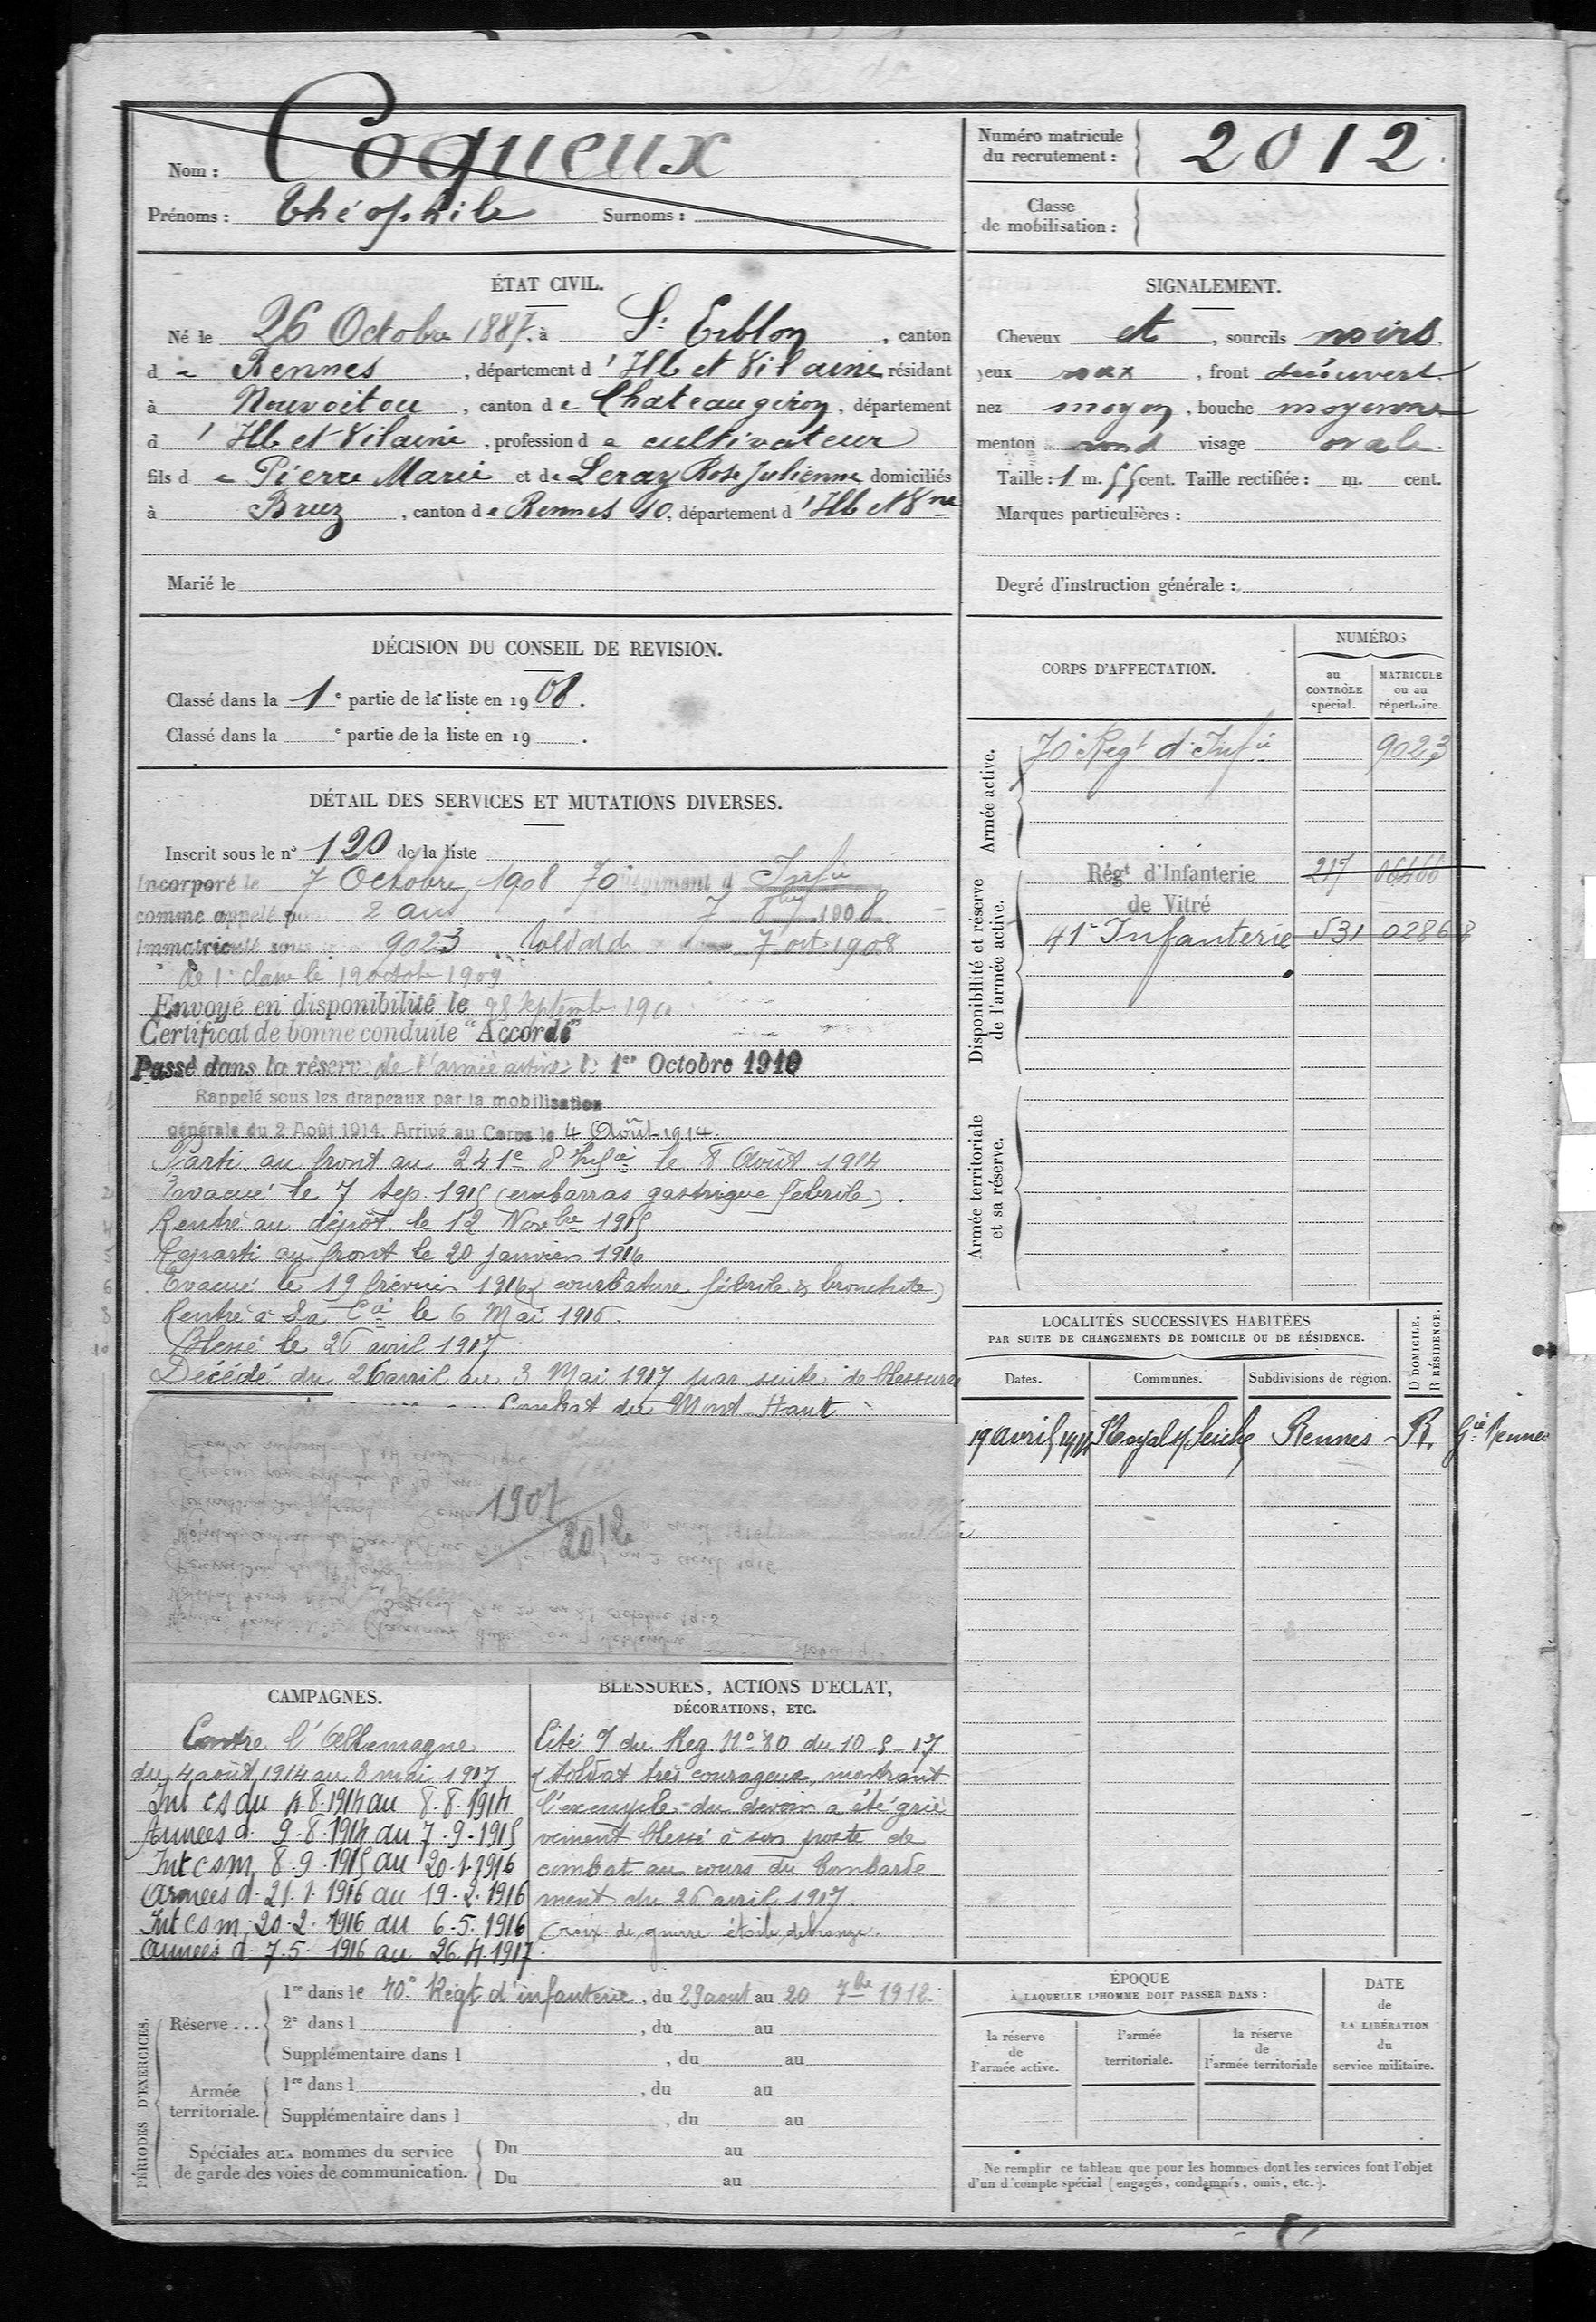 Nom : Coqueux
Prénoms : Théophile Surnoms :
Numéro matricule du recrutement : 2012.
Classe de mobilisation :
ÉTAT CIVIL.
Né le 26 Octobre 1887. à St Erblon, canton
de Rennes, département d'Ille et Vilaine résidant
à Nouvoitou, canton de Chateaugiron, département
d'Ille et Vilaine, profession de cultivateur
fils de Pierre Marie et de Leray Rose Julienne domiciliés
à Bruz, canton de Rennes SO, département d'Ille et Vne
Marié le
SIGNALEMENT.
Cheveux et, sourcils noirs.
yeux roux, front découvert.
nez moyen, bouche moyenne
menton rond visage ovale.
Taille : 1 m. 55 cent. Taille rectifiée : m. cent.
Marques particulières :
Degré d'instruction générale :
DÉCISION DU CONSEIL DE REVISION.
Classé dans la 1e partie de la liste en 1908.
Classé dans la e partie de la liste en 19 .
DÉTAIL DES SERVICES ET MUTATIONS DIVERSES.
Inscrit sous le n° 120 de la liste
Incorporé le 7 Octobre 1908 70 régiment d'Infie
comme appelé pour 2 ans 7 8bre 1908
Immatriculé sous le n° 9023 Soldat de 7 oct 1908
de 1e classe le 12 octob 1909
Envoyé en disponibilité le 28 septembre 1910
Certificat de bonne conduite "Accordé"
Passé dans la réserve de l'armée active le 1er Octobre 1910
Rappelé sous les drapeaux par la mobilisation
générale du 2 Août 1914. Arrivé au Corps le 4 Août 1914.
Parti au front au 241e d'Infie le 8 Août 1914
Evacué le 7 Sep. 1915 (embarras gastrique fébrile).
Rentré au dépôt le 12 Novbre 1915
Reparti au front le 20 janvier 1916
Evacué le 19 février 1916 (courbature fébrile & bronchite)
Rentré à sa Cie le 6 Mai 1916.
Blessé le 26 avril 1917
Décédé du 26 avril au 3 Mai 1917 par suite de blessures
Combat du Mont Haut
1907
2012
CORPS D'AFFECTATION.
NUMÉROS
au CONTRÔLE spécial.
MATRICULE ou au répertoire.
Armée active.
70e Regt d'Infie 9023
Disponibilité et réserve de l'armée active.
Régt d'Infanterie 217
de Vitré
41e Infanterie 531 02868
Armée territoriale et sa réserve.
LOCALITÉS SUCCESSIVES HABITÉES
PAR SUITE DE CHANGEMENTS DE DOMICILE OU DE RÉSIDENCE.
D DOMICILE. R RÉSIDENCE.
Dates. Communes. Subdivisions de région.
19 avril 1914 Noyal s/ Seiche Rennes R. Gie Rennes
CAMPAGNES.
Contre l'Allemagne
du 4 août 1914 au 3 mai 1917
Int cs du 4.8.1914 au 8.8.1914
Armées d. 9.8.1914 au 7.9.1915
Int csm 8.9.1915 au 20.1.1916
Armées d. 21.1.1916 au 19.2.1916
Int csm 20.2.1916 au 6.5.1916
Armées d. 7.5.1916 au 26.4.1917.
BLESSURES, ACTIONS D'ECLAT,
DÉCORATIONS, ETC.
Cité O/ du Reg. N° 80 du 10-5-17
(Soldat très courageux, montrant
l'exemple du devoir a été griè
vement blessé à son poste de
combat au cours du bombarde
ment du 26 avril 1917.
Croix de guerre étoile de bronze.
PÉRIODES D'EXERCICES.
Réserve ...
1re dans le 70e Régt d'infanterie, du 29 aout au 20 7bre 1912.
2e dans l , du au
Supplémentaire dans l , du au
Armée territoriale.
1re dans l , du au
Supplémentaire dans l , du au
Spéciales aux hommes du service
de garde des voies de communication.
Du au
Du au
ÉPOQUE
À LAQUELLE L'HOMME DOIT PASSER DANS :
la réserve de l'armée active.
l'armée territoriale.
la réserve de l'armée territoriale
DATE de LA LIBÉRATION du service militaire.
Ne remplir ce tableau que pour les hommes dont les services font l'objet
d'un décompte spécial (engagés, condamnés, omis, etc.).